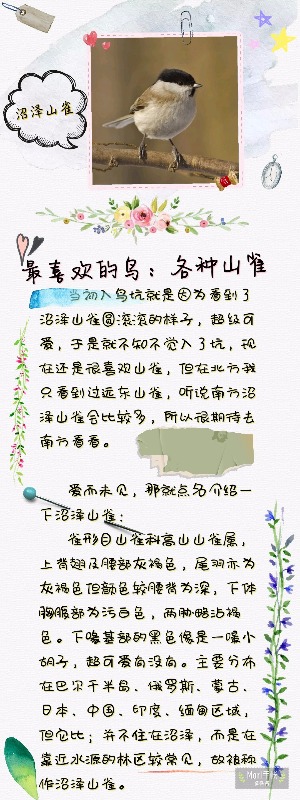 沼泽山雀
最喜欢的鸟：各种山雀
当初入鸟坑就是因为看到了
沼泽山雀圆滚滚的样子，超级可
爱，于是就不知不觉入了坑，现
在还是很喜欢山雀，但在北方我
只看到过远东山雀，听说南方沼
泽山雀会比较多，所以很期待去
南方看看。
爱而未见，那就点名介绍一
下沼泽山雀：
雀形目山雀科高山山雀属，
上背翅及腰部灰褐色，尾羽亦为
灰褐色但颜色较腰背为深，下体
胸腹部为污白色，两胁略沾褐
色。下喙基部的黑色像是一嘬小
胡子，超可爱有没有。主要分布
在巴尔干半岛、俄罗斯、蒙古、
日本、中国、印度、缅甸区域，
但它比；并不住在沼泽，而是在
靠近水源的林区较常见，故被称
作沼泽山雀。